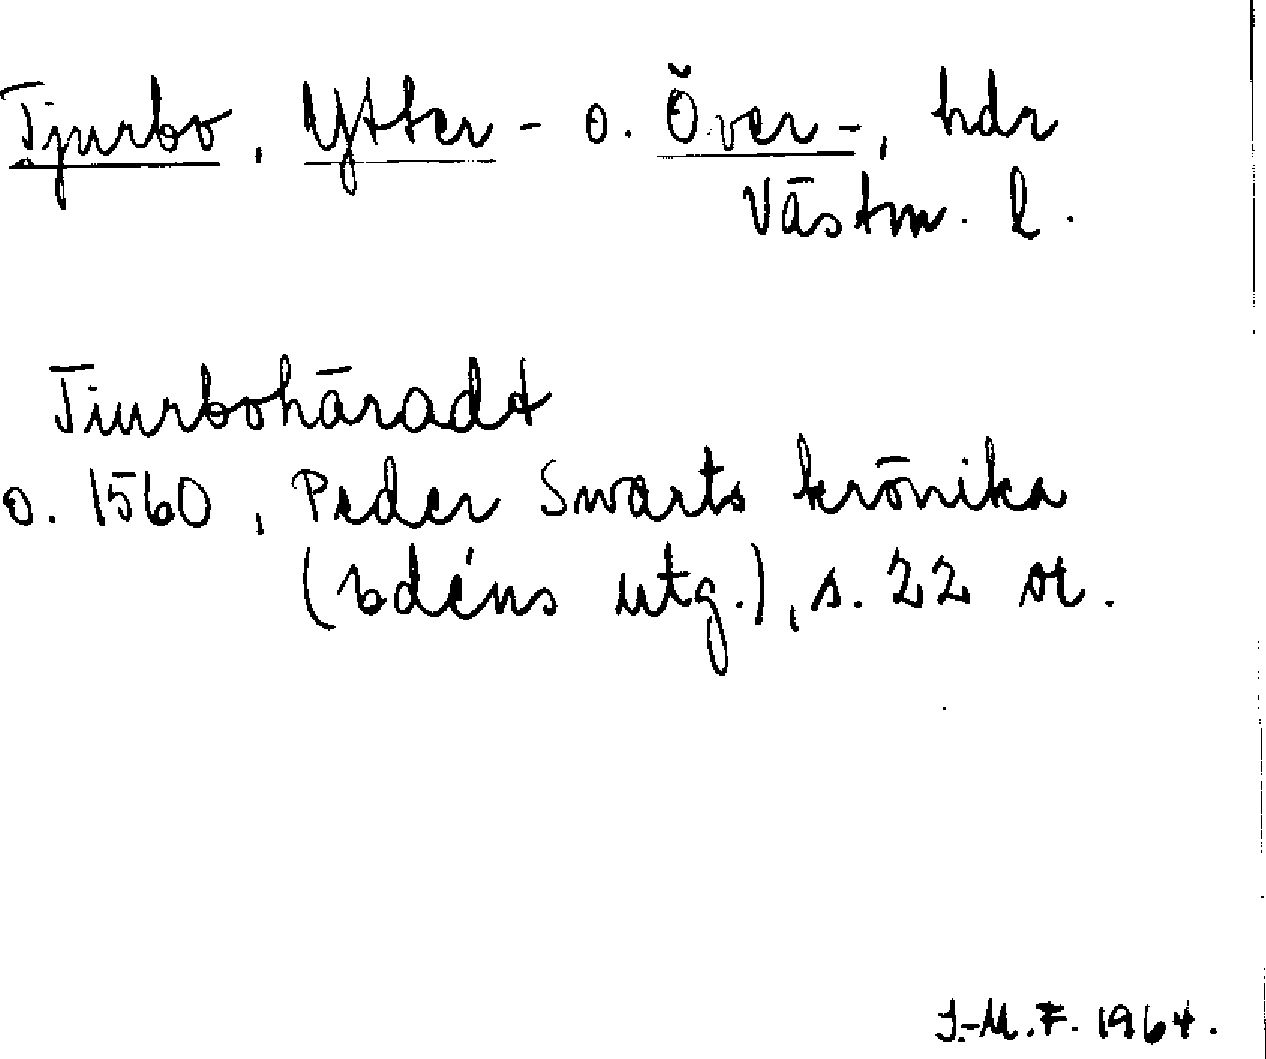 Tjurbo, Ytter- o. Över-, hdr
Västm. l.
Tiurbohäradt
o. 1560, Peder Swarts krönika
(Edéns utg.), s. 22 ст.
J.-M.F. 1964.